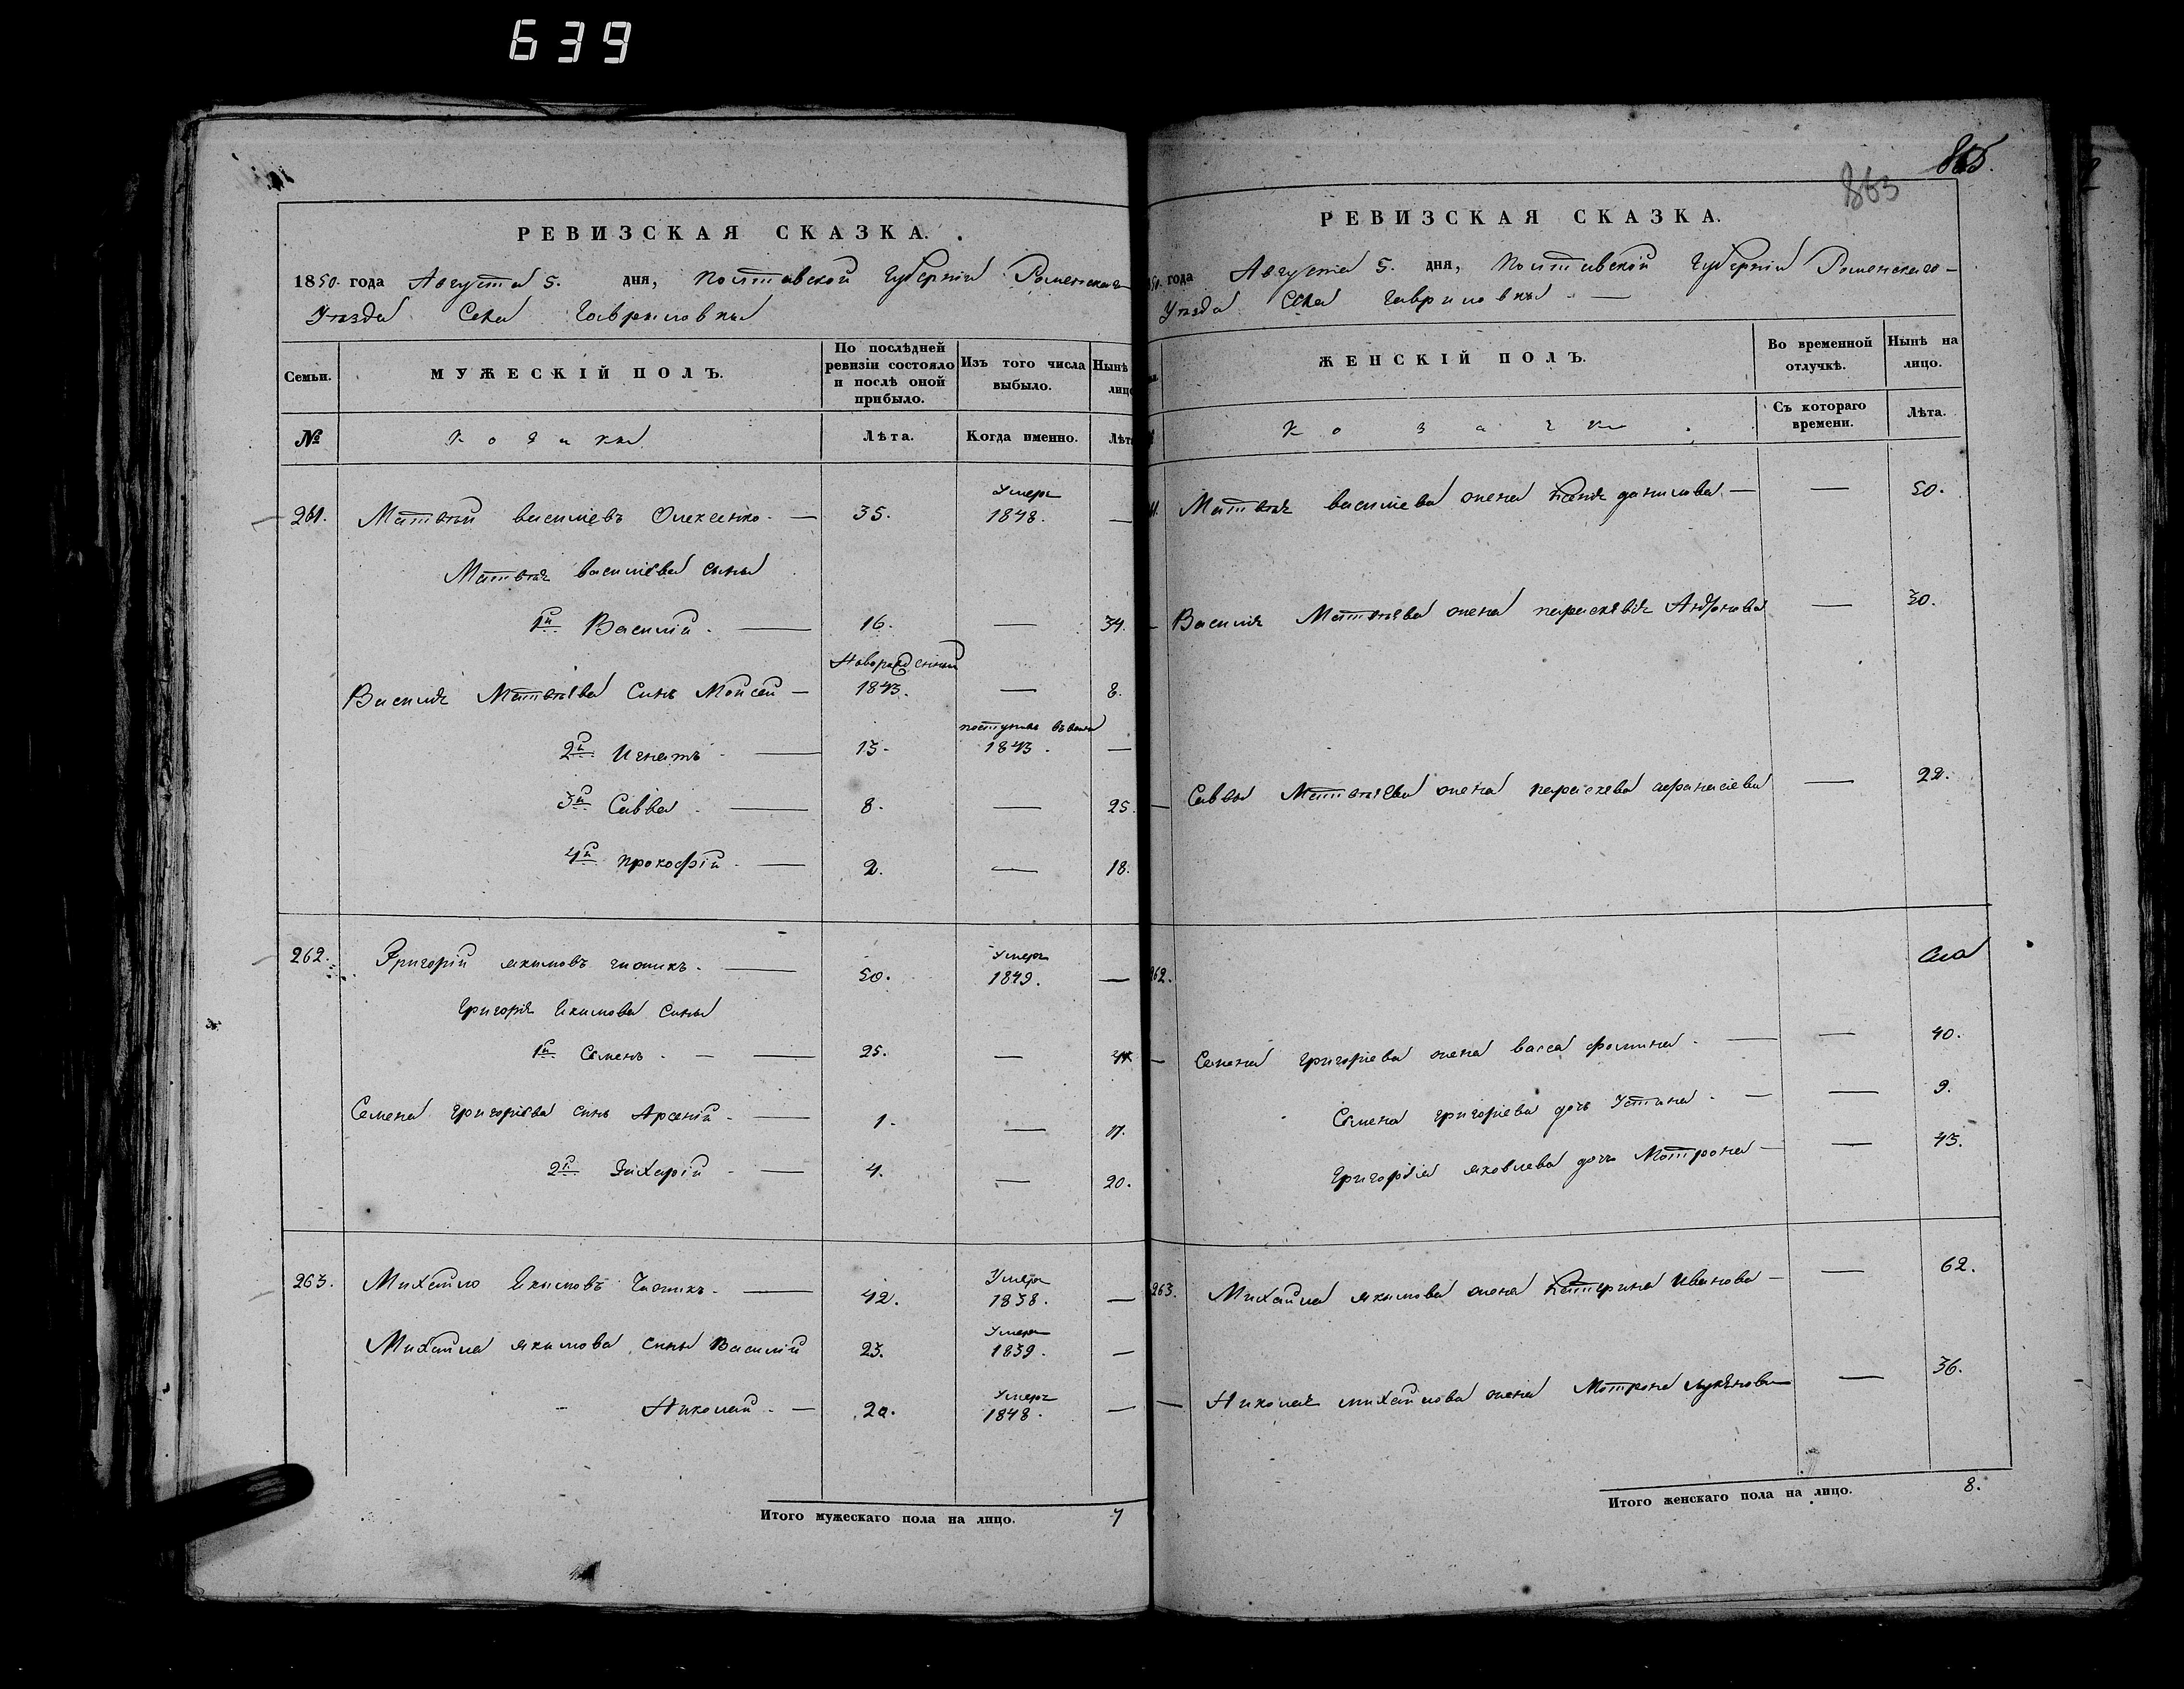 639
РЕВИЗСКАЯ СКАЗКА.
1850. года Августа 5. дня, Полтавской Губерніи Роменскаго
Уѣзда Села Гавриловки
Семьи.
МУЖЕСКІЙ ПОЛЪ.
По послѣдней ревизіи состояло и послѣ оной прибыло.
Изъ того числа выбыло.
Нынѣ
лицо
№
Козаки
Лѣта.
Когда именно.
Лѣта
261. Матвѣй василіевъ Олексенко. — 35. Умеръ 1848. —
Матвѣя василіева сыны
1й Василій. — 16. — 34.
Новорожденный
Василія Матвѣева Сынъ Мойсей — 1843. — 8.
2й Игнатъ — 13. поступилъ 1843. —
3й Савва — 8. — 25.
4й прокофій. — 2. — 18.
262. Григорій якимовъ — 50. Умеръ 1849. —
Григорія Якимова Сыны
1й Семенъ. — 25. —
Семена григоріева сынъ Арсеній — 1. — 17.
2й Захарій — 4. — 20.
263. Михайло Якимовъ — 42. Умеръ 1838. —
Михайла якимова сыны Василій 23. Умеръ 1839. —
Николай — 20. Умеръ 1848. —
Итого мужескаго пола на лицо. 7
865.
863
РЕВИЗСКАЯ СКАЗКА.
50. года Августа 5. дня, Полтавской Губерніи Роменскаго
Уѣзда Села Гавриловки —
ЖЕНСКІЙ ПОЛЪ.
Во временной отлучкѣ.
Нынѣ на лицо.
Козачки.
Съ котораго времени.
Лѣта.
61. Матвѣя василіева жена данилова — — 50.
Василія Матвѣева жена параскевія — 30.
Саввы Матвѣева жена параскева афанасіева — 22.
262.
Семена григоріева жена васса фомина. — — 40.
Семена григоріева дочь Устина. — — 9.
Григорія яковлева дочь Мотрона — — 43.
263. Михайла якимова жена Катерина Иванова — — 62.
Николая михайлова жена Мотрона лукянова — 36.
Итого женскаго пола на лицо. 8.